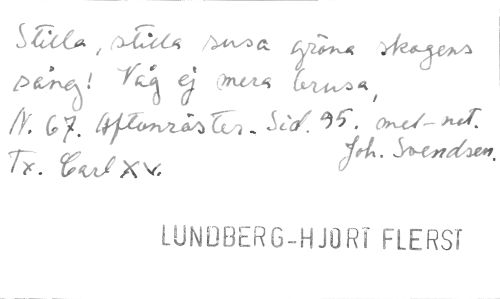 Stilla, stilla susa gröna skogens
sång! Våg ej mera brusa,
N. 67. Aftonröster. Sid. 95. met-not.
Tx. Carl XV. Joh. Svendsen.
LUNDBERG-HJORT FLERST